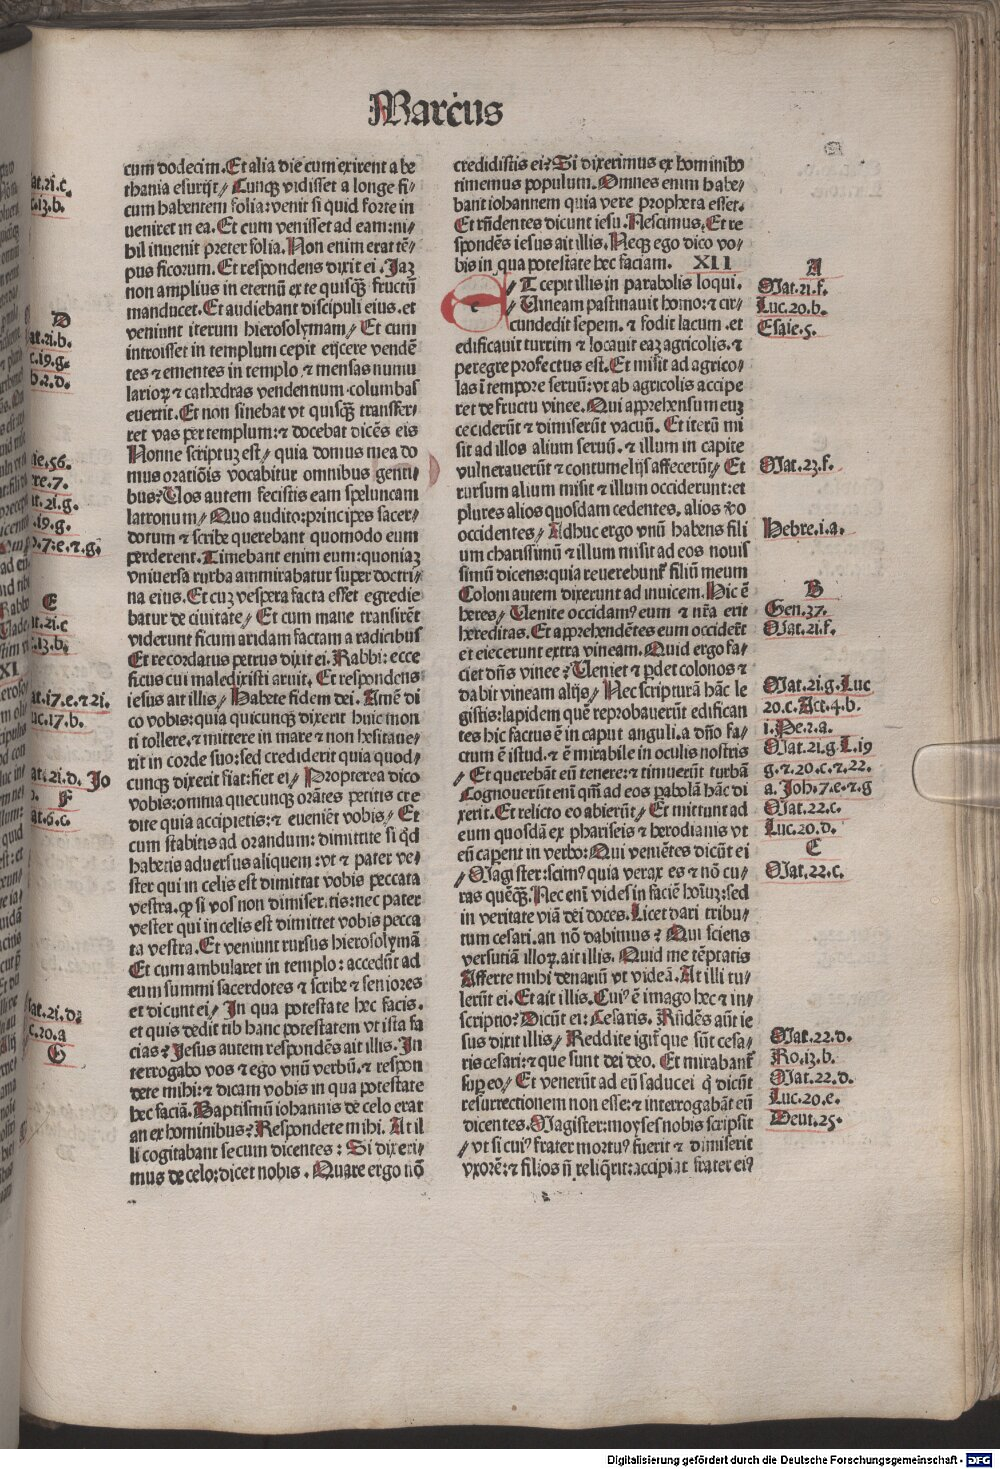 Marcus
cum dodecim. Et alia die cum exirent a be
thania esurijt⸗ Cunqꝫ vidisset a longe fi⸗
cum habentem folia: venit si quid forte in
ueniret in ea. Et cum venisset ad eam: ni⸗
hil inuenit preter folia. Non enim erat tē⸗
pus ficorum. Et respondens dixit ei. Jaꝫ
non amplius in eternū ex te quisqꝫ fructū
manducet. Et audiebant discipuli eius. et
veniunt iterum hierosolymam⸗ Et cum
introisset in templum cepit eijcere vendē
tes ⁊ ementes in templo. ⁊ mensas numu
larioꝝ ⁊ cathedras vendentium columbas
euertit. Et non sinebat vt quisqꝫ transfer⸗
ret vas per templum: ⁊ docebat dicēs eis
Nonne scriptuꝫ est⸗ quia domus mea do
mus oratiōis vocabitur omnibus genti⸗
bus? Uos autem fecistis eam speluncam
latronum⸗ Quo audito: principes sacer⸗
dotum ⁊ scribe querebant quomodo eum
perderent. Timebant enim eum: quoniaꝫ
vniuersa turba ammirabatur super doctri⸗
na eius. Et cuꝫ vespera facta esset egredie
batur de ciuitate⸗ Et cum mane transirēt
viderunt ficum aridam factam a radicibus
Et recordatus petrus dixit ei. Rabbi: ecce
ficus cui maledixisti aruit. Et respondens
iesus ait illis⸗ Habete fidem dei. Amē di
co vobis: quia quicunqꝫ dixerit huic mon
ti tollere. ⁊ mittere in mare ⁊ non hesitaue⸗
rit in corde suo: sed crediderit quia quod⸗
cunqꝫ dixerit fiat: fiet ei⸗ Propterea dico
vobis: omnia quecunqꝫ orātes petitis cre
dite quia accipietis: ⁊ eueniēt vobis⸗ Et
cum stabitis ad orandum: dimittite si qd
habetis aduersus aliquem: vt ⁊ pater ve⸗
ster qui in celis est dimittat vobis peccata
vestra. ꝙ si vos non dimiseritis: nec pater
vester qui in celis est dimittet vobis pecca
ta vestra. Et veniunt rursus hierosolymā
Et cum ambularet in templo: accedūt ad
eum summi sacerdotes ⁊ scribe ⁊ seniores
et dicunt ei⸗ In qua potestate hec facis.
et quis dedit tibi hanc potestatem vt ista fa
cias? Jesus autem respondēs ait illis. In
terrogabo vos ⁊ ego vnū verbū. ⁊ respon
dete mihi: ⁊ dicam vobis in qua potestate
hec faciā. Baptismū iohannis de celo erat
an ex hominibus? Respondete mihi. At il
li cogitabant secum dicentes: Si dixeri⸗
mus de celo: dicet nobis. Quare ergo nō
credidistis ei? Si dixerimus ex hominibꝰ
timemus populum. Omnes enim habe⸗
bant iohannem quia vere propheta esset.
Et rn̄dentes dicunt iesu. Nescimus. Et re
spondēs iesus ait illis. Neqꝫ ego dico vo⸗
bis in qua potestate hec faciam. XII
eT cepit illis in parabolis loqui.
Uineam pastinauit homo: ⁊ cir⸗
cundedit sepem. ⁊ fodit lacum. et
edificauit turrim ⁊ locauit eaꝫ agricolis. ⁊
peregre profectus est. Et misit ad agrico⸗
las ī tempore seruū: vt ab agricolis accipe
ret de fructu vinee. Qui apprehensum euꝫ
ceciderūt ⁊ dimiserūt vacuū. Et iterū mi
sit ad illos alium seruū. ⁊ illum in capite
vulnerauerūt ⁊ contumelijs affecerūt⸗ Et
rursum alium misit ⁊ illum occiderunt: et
plures alios quosdam cedentes. alios ꝟo
occidentes⸗ Adhuc ergo vnū habens fili
um charissimū ⁊ illum misit ad eos nouis
simū dicens: quia reuerebunt᷑ filiū meum
Coloni autem dixerunt ad inuicem. Hic ē
heres⸗ Uenite occidamꝰ eum ⁊ nr̄a erit
hereditas. Et apprehendētes eum occiderūt
et eiecerunt extra vineam. Quid ergo fa⸗
ciet dn̄s vinee? Ueniet ⁊ ꝑdet colonos ⁊
dabit vineam alijs⸗ Nec scripturā hāc le
gistis: lapidem quē reprobauerūt edifican
tes hic factus ē in caput anguli. a dn̄o fa⸗
ctum ē istud. ⁊ ē mirabile in oculis nostris
⸗ Et querebāt eū tenere: ⁊ timuerūt turbā
Cognouerūt enī qm̄ ad eos ꝑabolā hāc di
xerit. Et relicto eo abierūt⸗ Et mittunt ad
eum quosdā ex phariseis ⁊ herodianis vt
eū caperent in verbo: Qui veniētes dicūt ei
⸗ Magister: scimꝰ quia verax es ⁊ nō cu⸗
ras quēqꝫ. Nec enī vides in faciē hoīuꝫ: sed
in veritate viā dei doces. Licet dari tribu⸗
tum cesari. an nō dabimus? Qui sciens
versutiā illoꝝ. ait illis. Quid me tēptatis
Afferte mihi denariū vt videā. At illi tu⸗
lerūt ei. Et ait illis. Cuiꝰ ē imago hec ⁊ in⸗
scriptio? Dicūt ei: Cesaris. Rn̄dēs aūt ie
sus dixit illis⸗ Reddite igit᷑ que sūt cesa⸗
ris cesari: ⁊ que sunt dei deo. Et mirabant᷑
suꝑ eo⸗ Et venerūt ad eū saducei q̄ dicūt
resurrectionem non esse: ⁊ interrogabāt eū
dicentes. Magister: moyses nobis scripsit
⸗ vt si cuiꝰ frater mortuꝰ fuerit ⁊ dimiserit
vxorē: ⁊ filios n̄ reliq̄rit: accipiat frater eiꝰ
A
Mat.21.f.
Luc.20.b.
Esaie.5.
Mat.23.f.
Hebre.i.a.
B
Gen.37.
Mat.21.f.
Mat.21.g.Luc
20.c.Act.4.b.
i.Pe.2.a.
Mat.21.g.L.19
g.⁊.20.c.⁊.22.
a.Joh.7.e.⁊.g
Mat.22.c.
Luc.20.d.
C
Mat.22.c.
Mat.22.d.
Ro.13.b.
Mat.22.d.
Luc.20.e.
Deut.25.
D
E
F
G
Digitalisierung gefördert durch die Deutsche Forschungsgemeinschaft - DFG